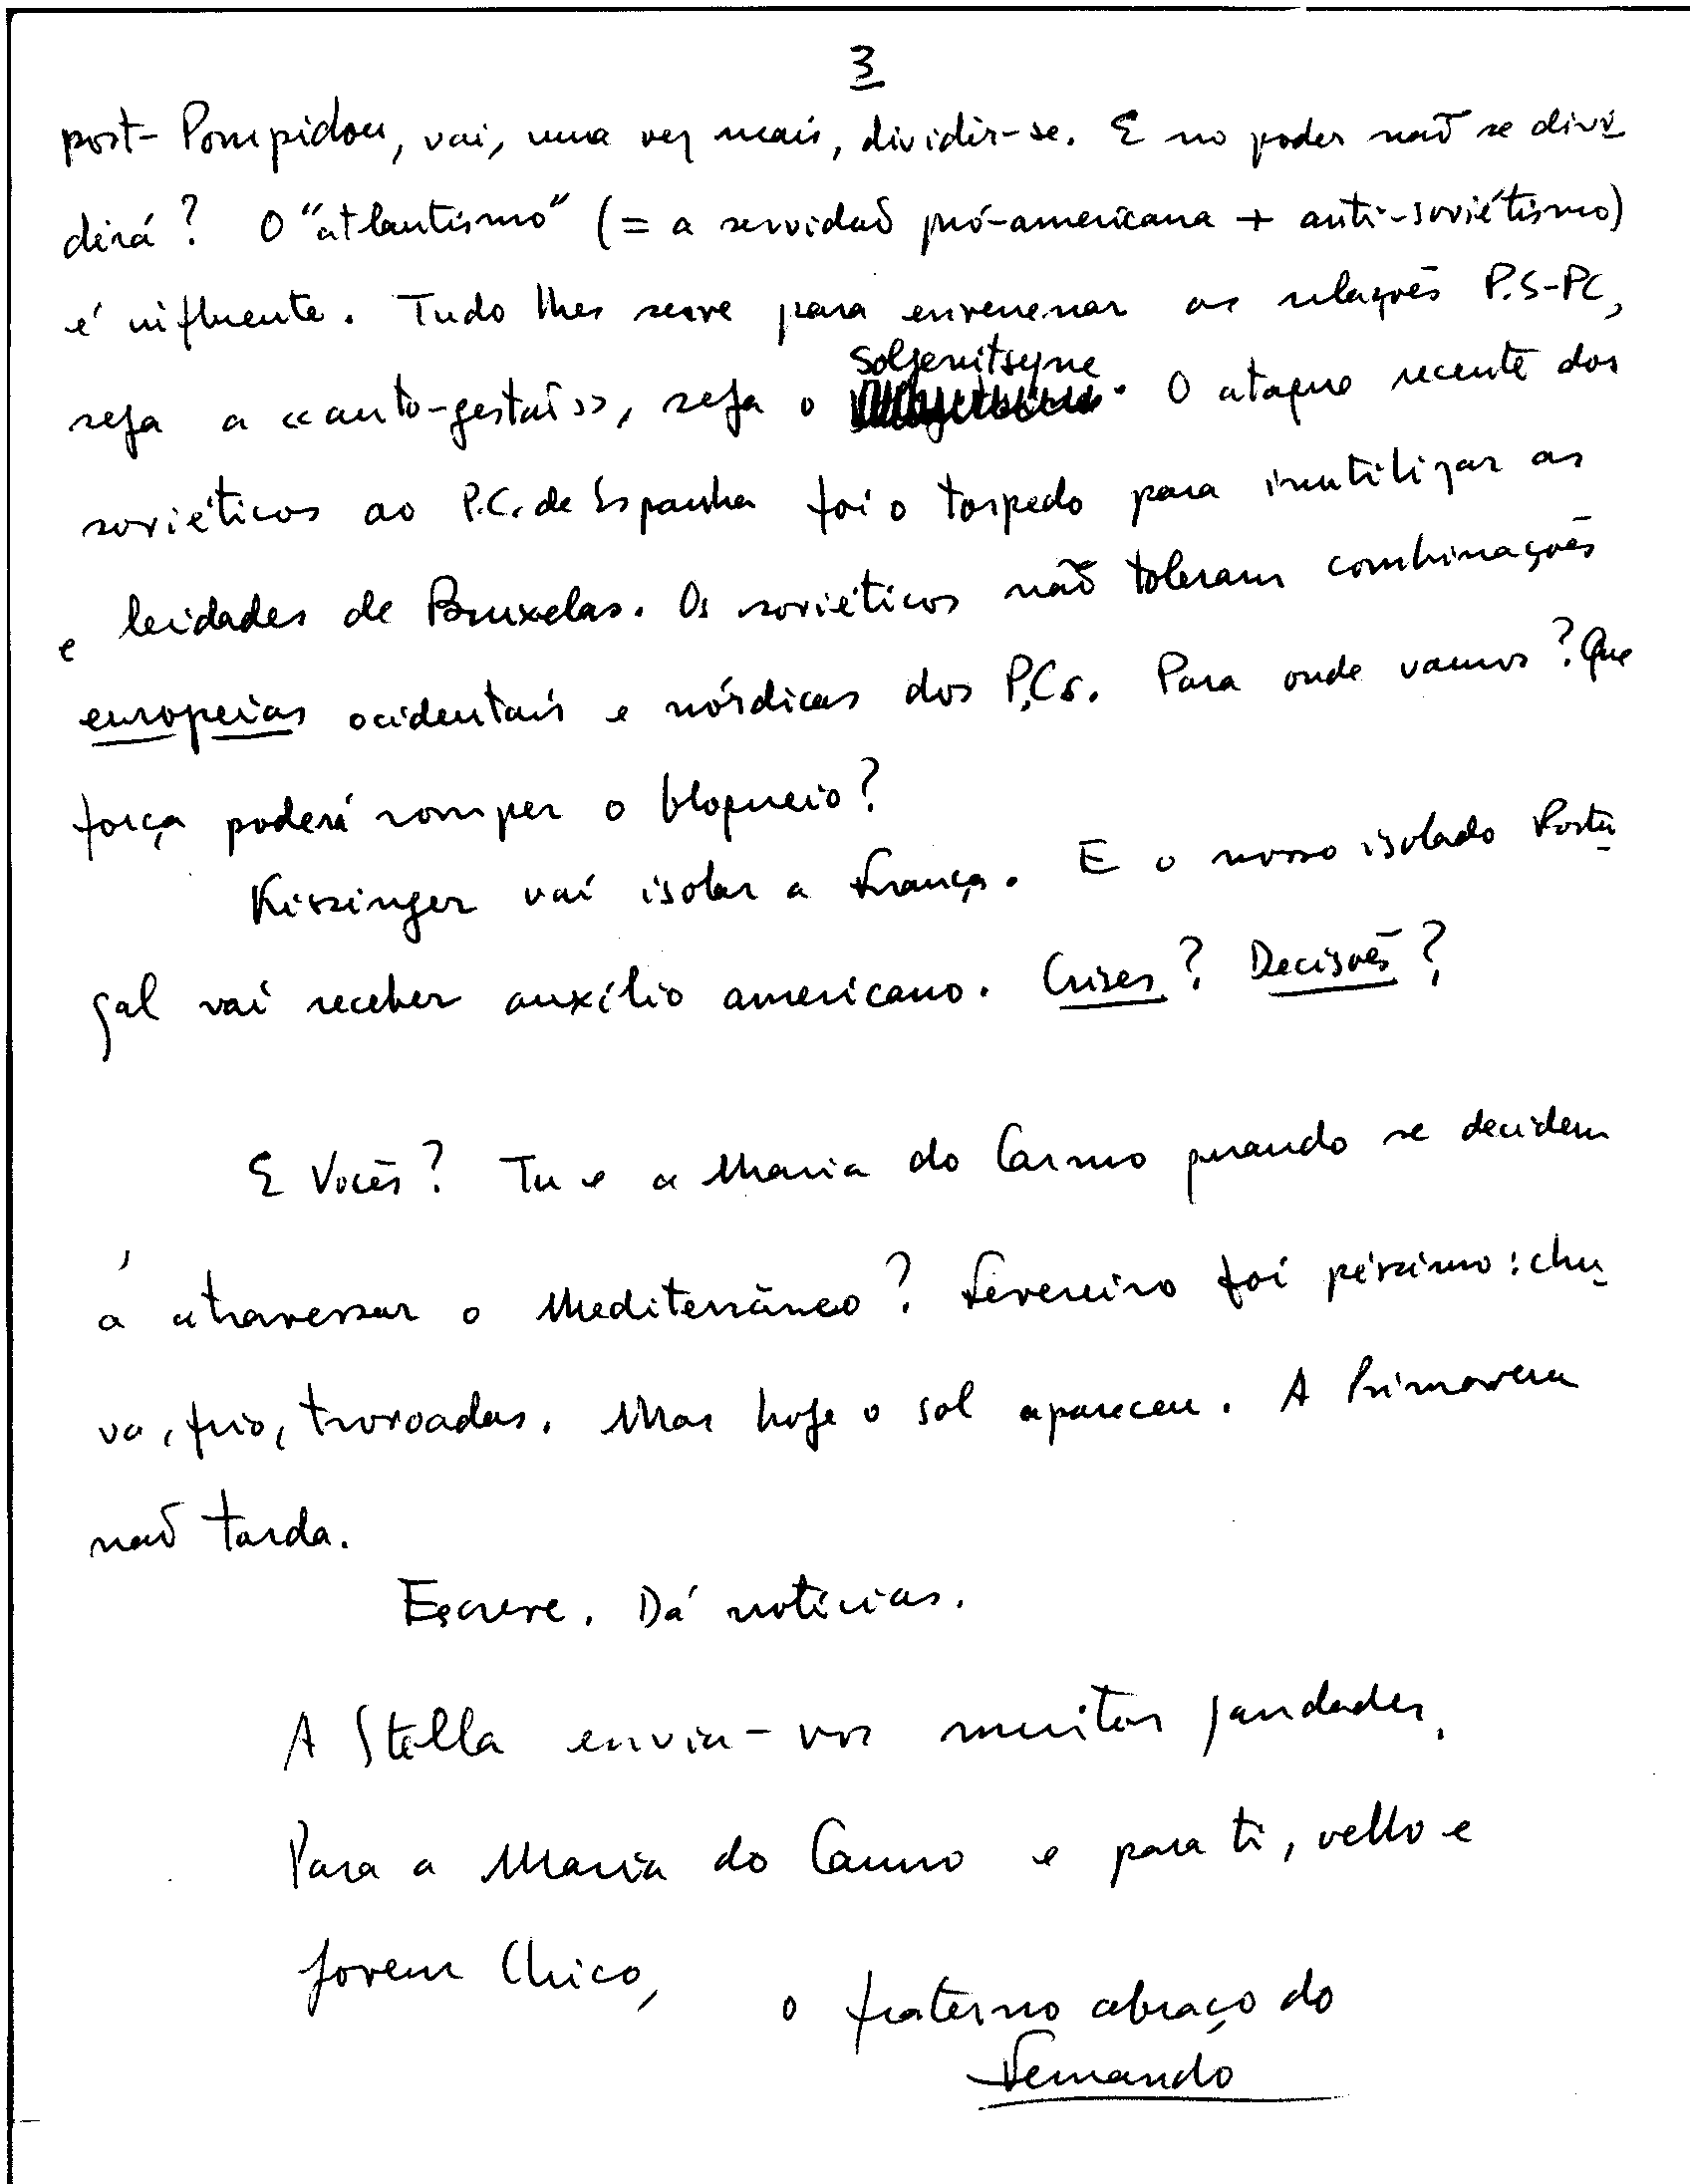 3
post-Pompidou, vai, uma vez mais, dividir-se. E no poder não se divi
dirá? O "atlantismo" (= a servidão pró-americana + anti-soviétismo)
é influente. Tudo lhes serve para envenenar as relações P.S-PC,
seja a «auto-gestão», seja o Soljenitsyne. O ataque recente dos
soviéticos ao P.C. de Espanha foi o torpedo para inutilizar as
e leidades de Bruxelas. Os soviéticos não toleram combinações
europeias ocidentais e nórdicas dos P.Cs. Para onde vamos? Que
força poderá romper o bloqueio?
Kissinger vai isolar a França. E o nosso isolado Portu
gal vai receber auxílio americano. Crises? Decisões?
E Vocês? Tu e a Maria do Carmo quando se decidem
a atravessar o Mediterrâneo? Fevereiro foi péssimo: chu
va, frio, trovoadas. Mas hoje o sol apareceu. A Primavera
não tarda.
Escreve. Dá notícias.
A Stella envia-vos muitas saudades.
Para a Maria do Carmo e para ti, velho e
jovem Chico,
o fraterno abraço do
Fernando